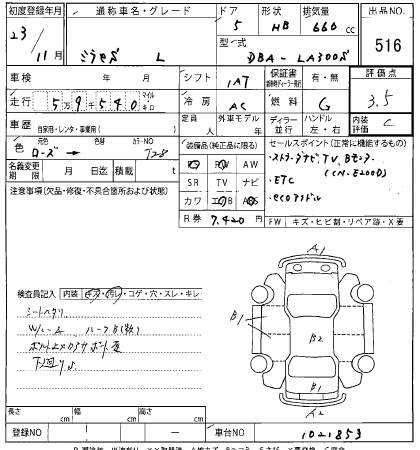 初度登録年月 通称車名・グレード ドア 形状 排気量 出品NO.
23/11月 ミラセダ L 5 HB 660cc 516
型式 DBA-LA300S
車検 年 月 シフト 1AT 保証書 有・無 評価点
走行 59540 マイル・キロ 冷房 AC 燃料 G 3.5
車歴 自家用・レンタ・事業用( ) 定員 人 外車モデル 年 ディーラー・並行 ハンドル 左・右 内装評価 C
色 元色 ローズ→ 色替 カラーNO T28 装備品(純正品に限る) セールスポイント(正常に機能するもの)
PS PW AW ・ストラーダナビ, TV, Bモニター
名義変更期限 月 日迄 積載 t SR TV ナビ (CN-E200D)
・ETC
注意事項(欠品・修復・不具合箇所および状態) カワ エアB ABS ・ecoアイドル
R券 7,420 円 FW キズ・ヒビ割・リペア跡・X要
A1
検査員記入 内装 キズ・汚レ・コゲ・穴・スレ・キレ
シートヘタリ B1 B1
B2
下廻りサ
B1
A2
長さ cm 幅 cm 高さ cm
登録NO 車台NO 1021853